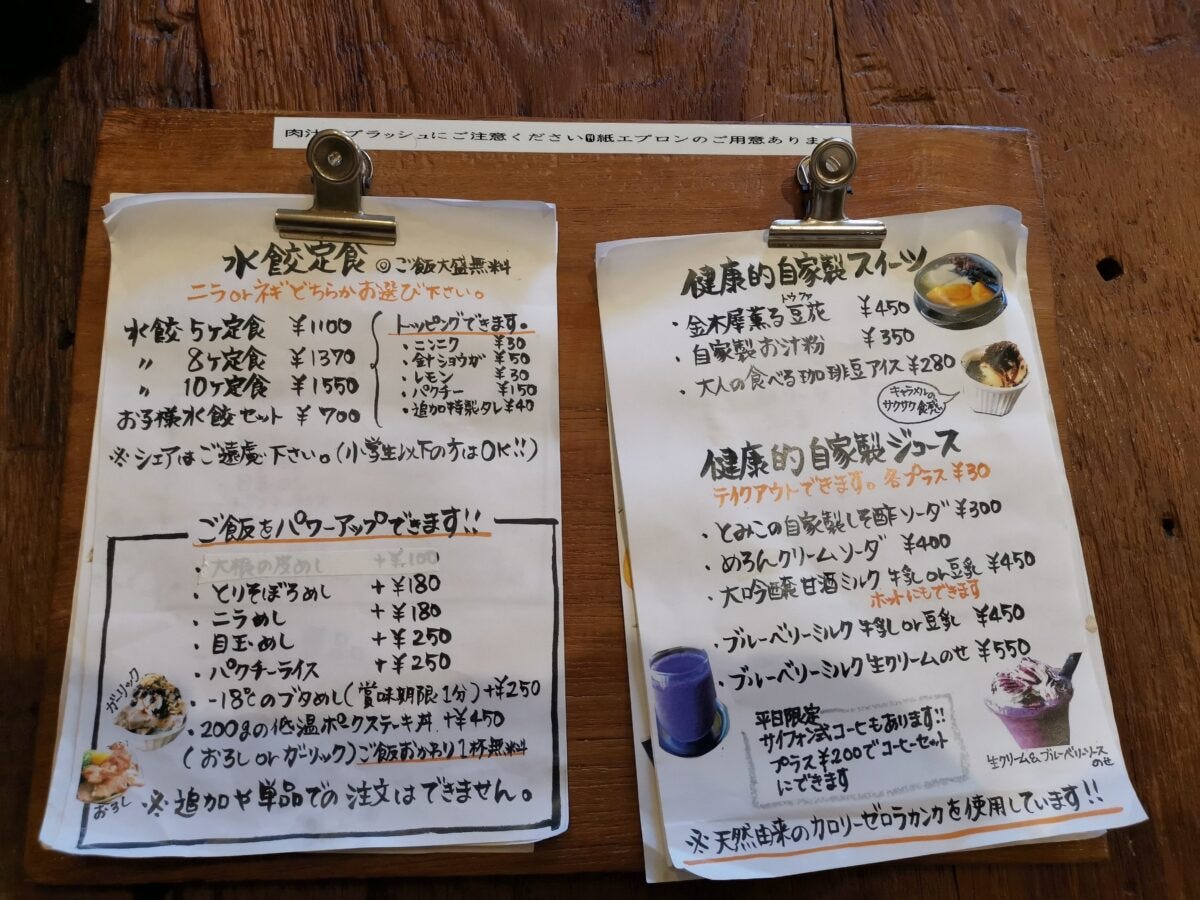 肉汁 プラッシュにご注意ください 紙エプロンのご用意あります
水餃定食 ◎ご飯大盛無料
ニラorネギどちらかお選び下さい。
水餃 5ヶ定食 ¥1100
〃 8ヶ定食 ¥1370
〃 10ヶ定食 ¥1550
お子様水餃セット ¥700
トッピングできます。
・ニンニク ¥30
・針ショウガ ¥50
・レモン ¥30
・パクチー ¥150
・追加特製タレ ¥40
※シェアはご遠慮下さい。(小学生以下の方はOK!!)
ご飯をパワーアップできます!!
・大根の皮めし +¥100
・とりそぼろめし +¥180
・ニラめし +¥180
・目玉めし +¥250
・パクチーライス +¥250
・-18℃のブタめし(賞味期限1分)+¥250
・200gの低温ポークステーキ丼 +¥450
(おろしorガーリック)ご飯おかわり1杯無料
ガーリック
おろし
※追加や単品での注文はできません。
健康的自家製スイーツ
トウファ
・金木犀薫る豆花 ¥450
・自家製お汁粉 ¥350
・大人の食べる珈琲豆アイス ¥280
キャラメルの
サクサク食感
健康的自家製ジュース
テイクアウトできます。各プラス¥30
・とみこの自家製しそ酢ソーダ ¥300
・めろんクリームソーダ ¥400
・大吟醸甘酒ミルク 牛乳or豆乳 ¥450
ホットにもできます
・ブルーベリーミルク 牛乳or豆乳 ¥450
・ブルーベリーミルク生クリームのせ ¥550
平日限定
サイフォン式コーヒーもあります!!
プラス¥200でコーヒーセット
にできます
生クリーム&ブルーベリーソース
のせ
※天然由来のカロリーゼロラカンカを使用しています!!